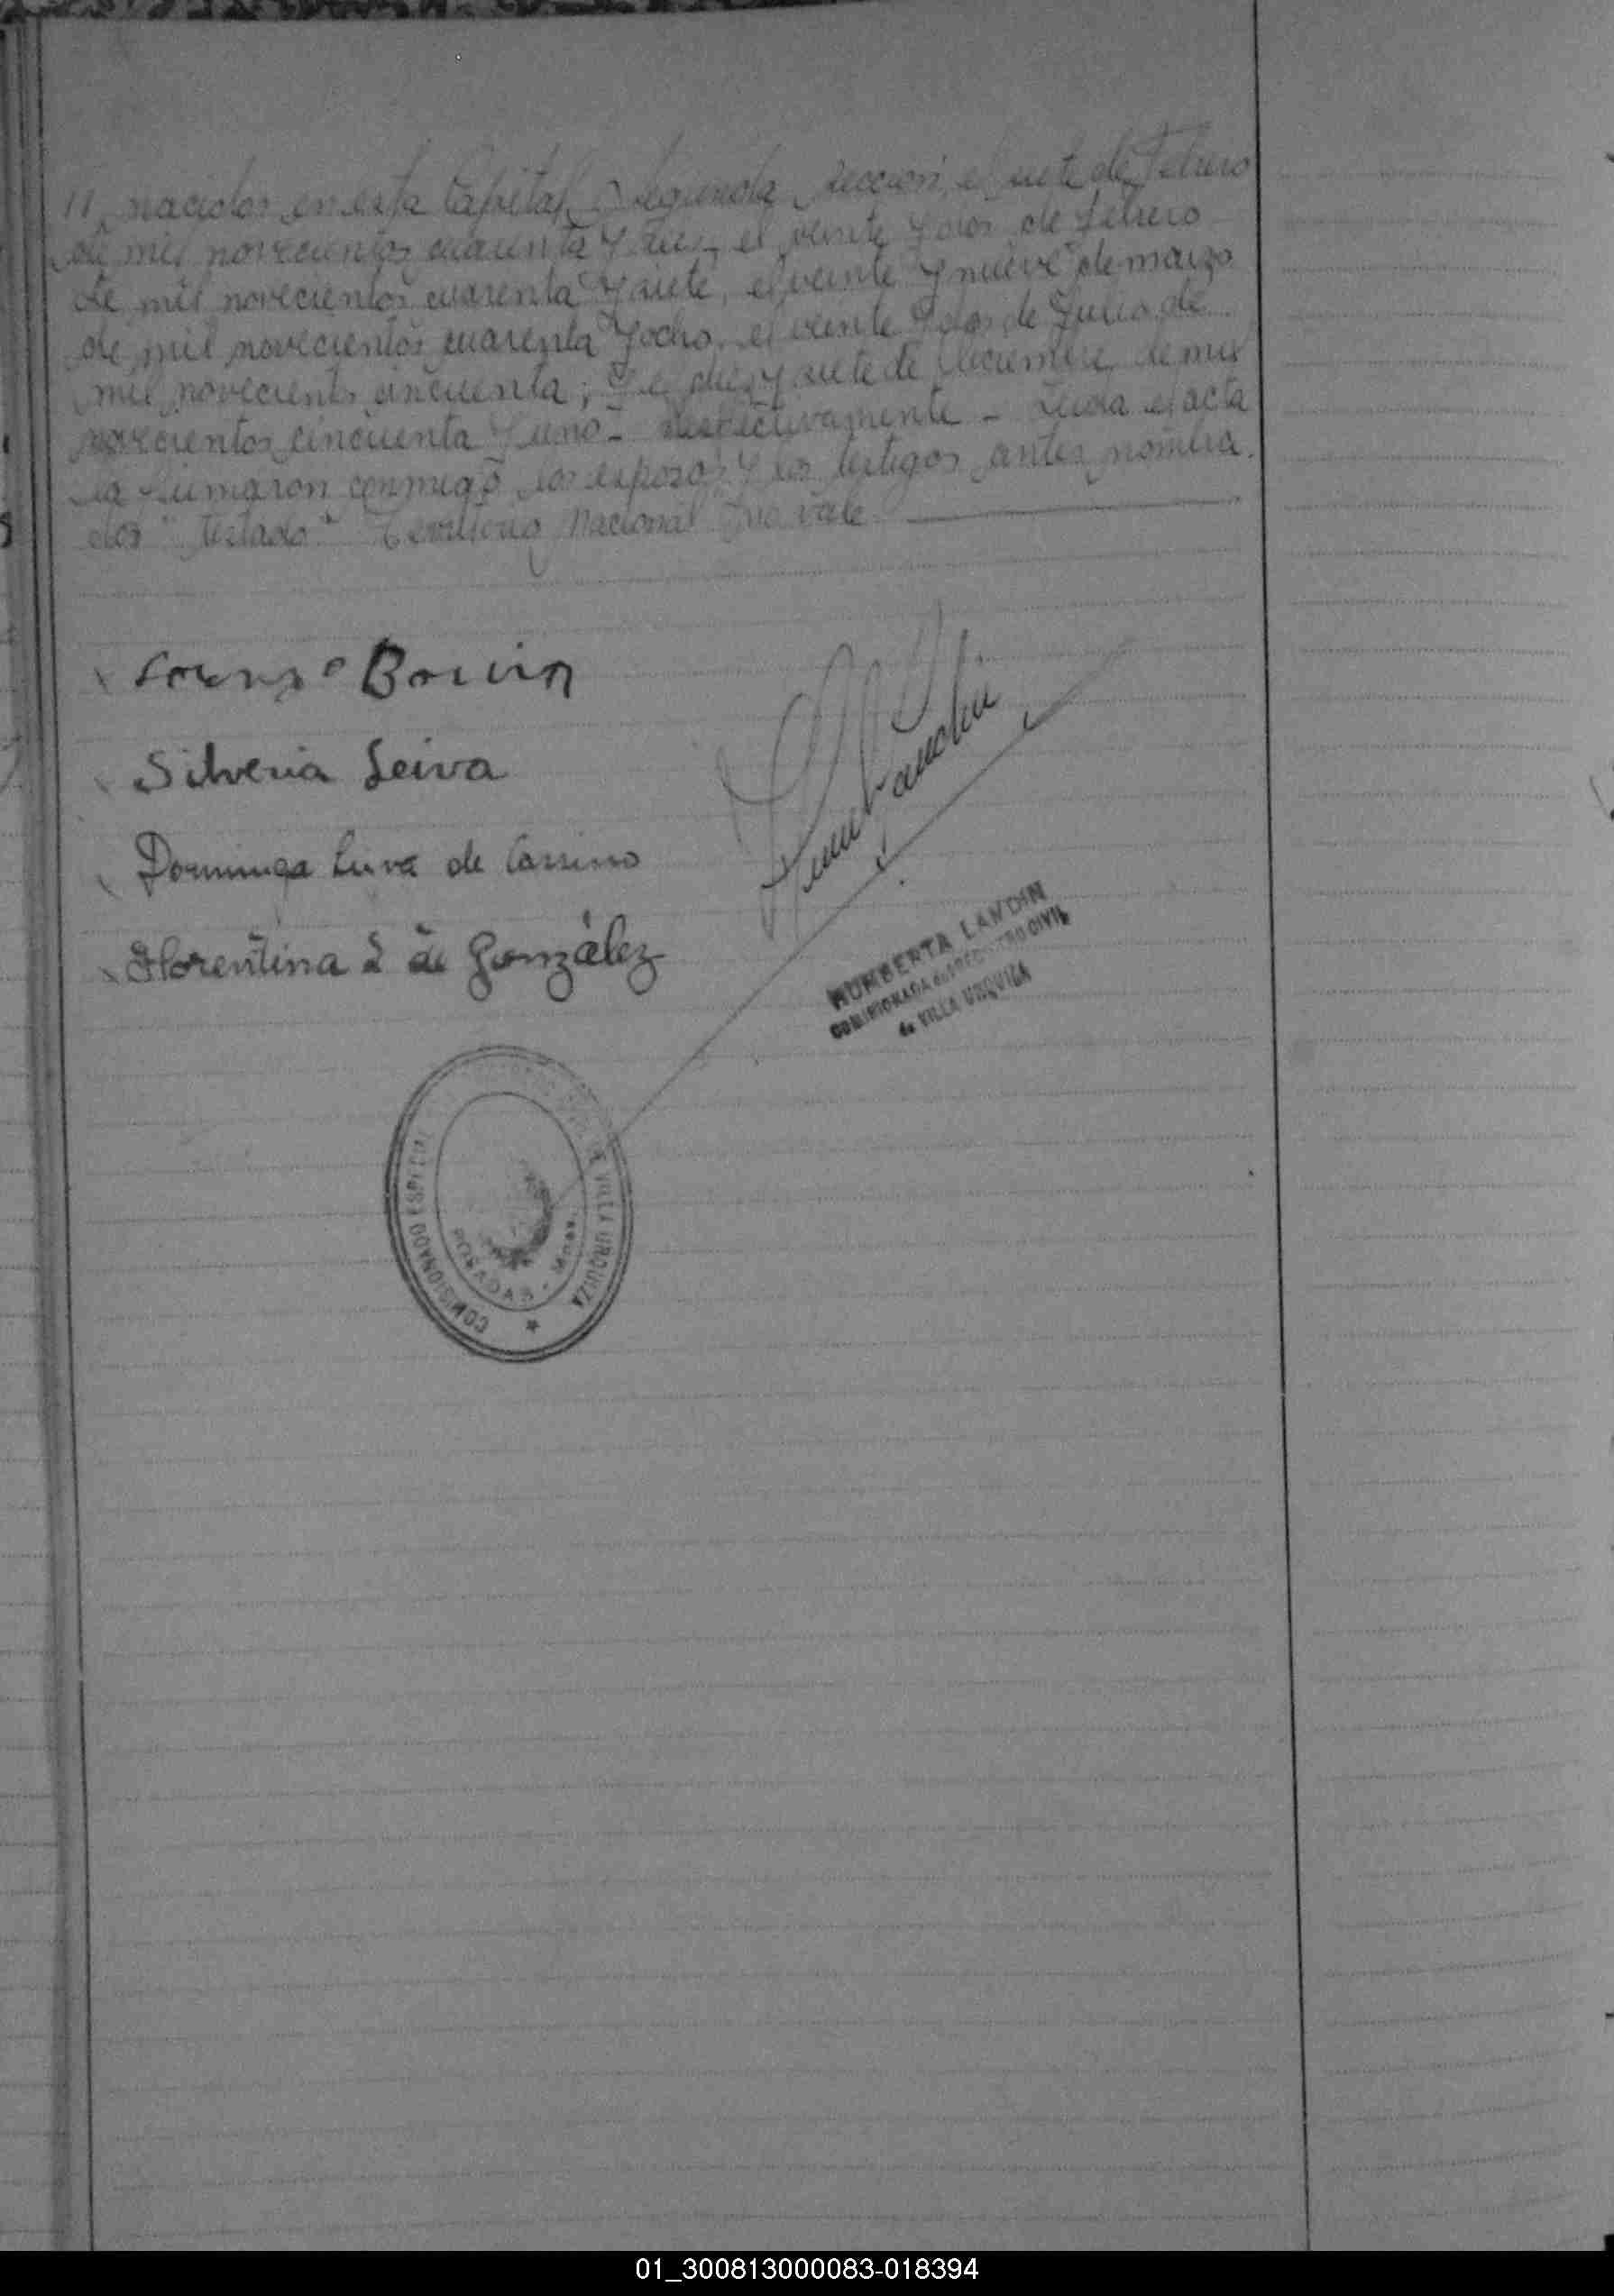 11, nacidos en esta Capital, Segunda sección, el siete de Febrero
de mil novecientos cuarenta y tres, el veinte y dos de febrero
de mil novecientos cuarenta y siete, el veinte y nueve de marzo
de mil novecientos cuarenta y ocho, el veinte y dos de Julio de
mil novecientos cincuenta, y el diez y siete de diciembre de mil
novecientos cincuenta y uno - respectivamente - Leida el acta
la firmaron conmigo los esposos y los testigos antes nombra
dos "testado" Territorio Nacional no vale
Silveria Leiva
Dominga Leiva de
Florentina L de González
HUMBERTA LANDIN
COMISIONADA REGISTRO CIVIL
de VILLA URQUIZA
COMISIONADO ESPECIAL DE VILLA URQUIZA
POSADAS - Mnes.
01_300813000083-018394